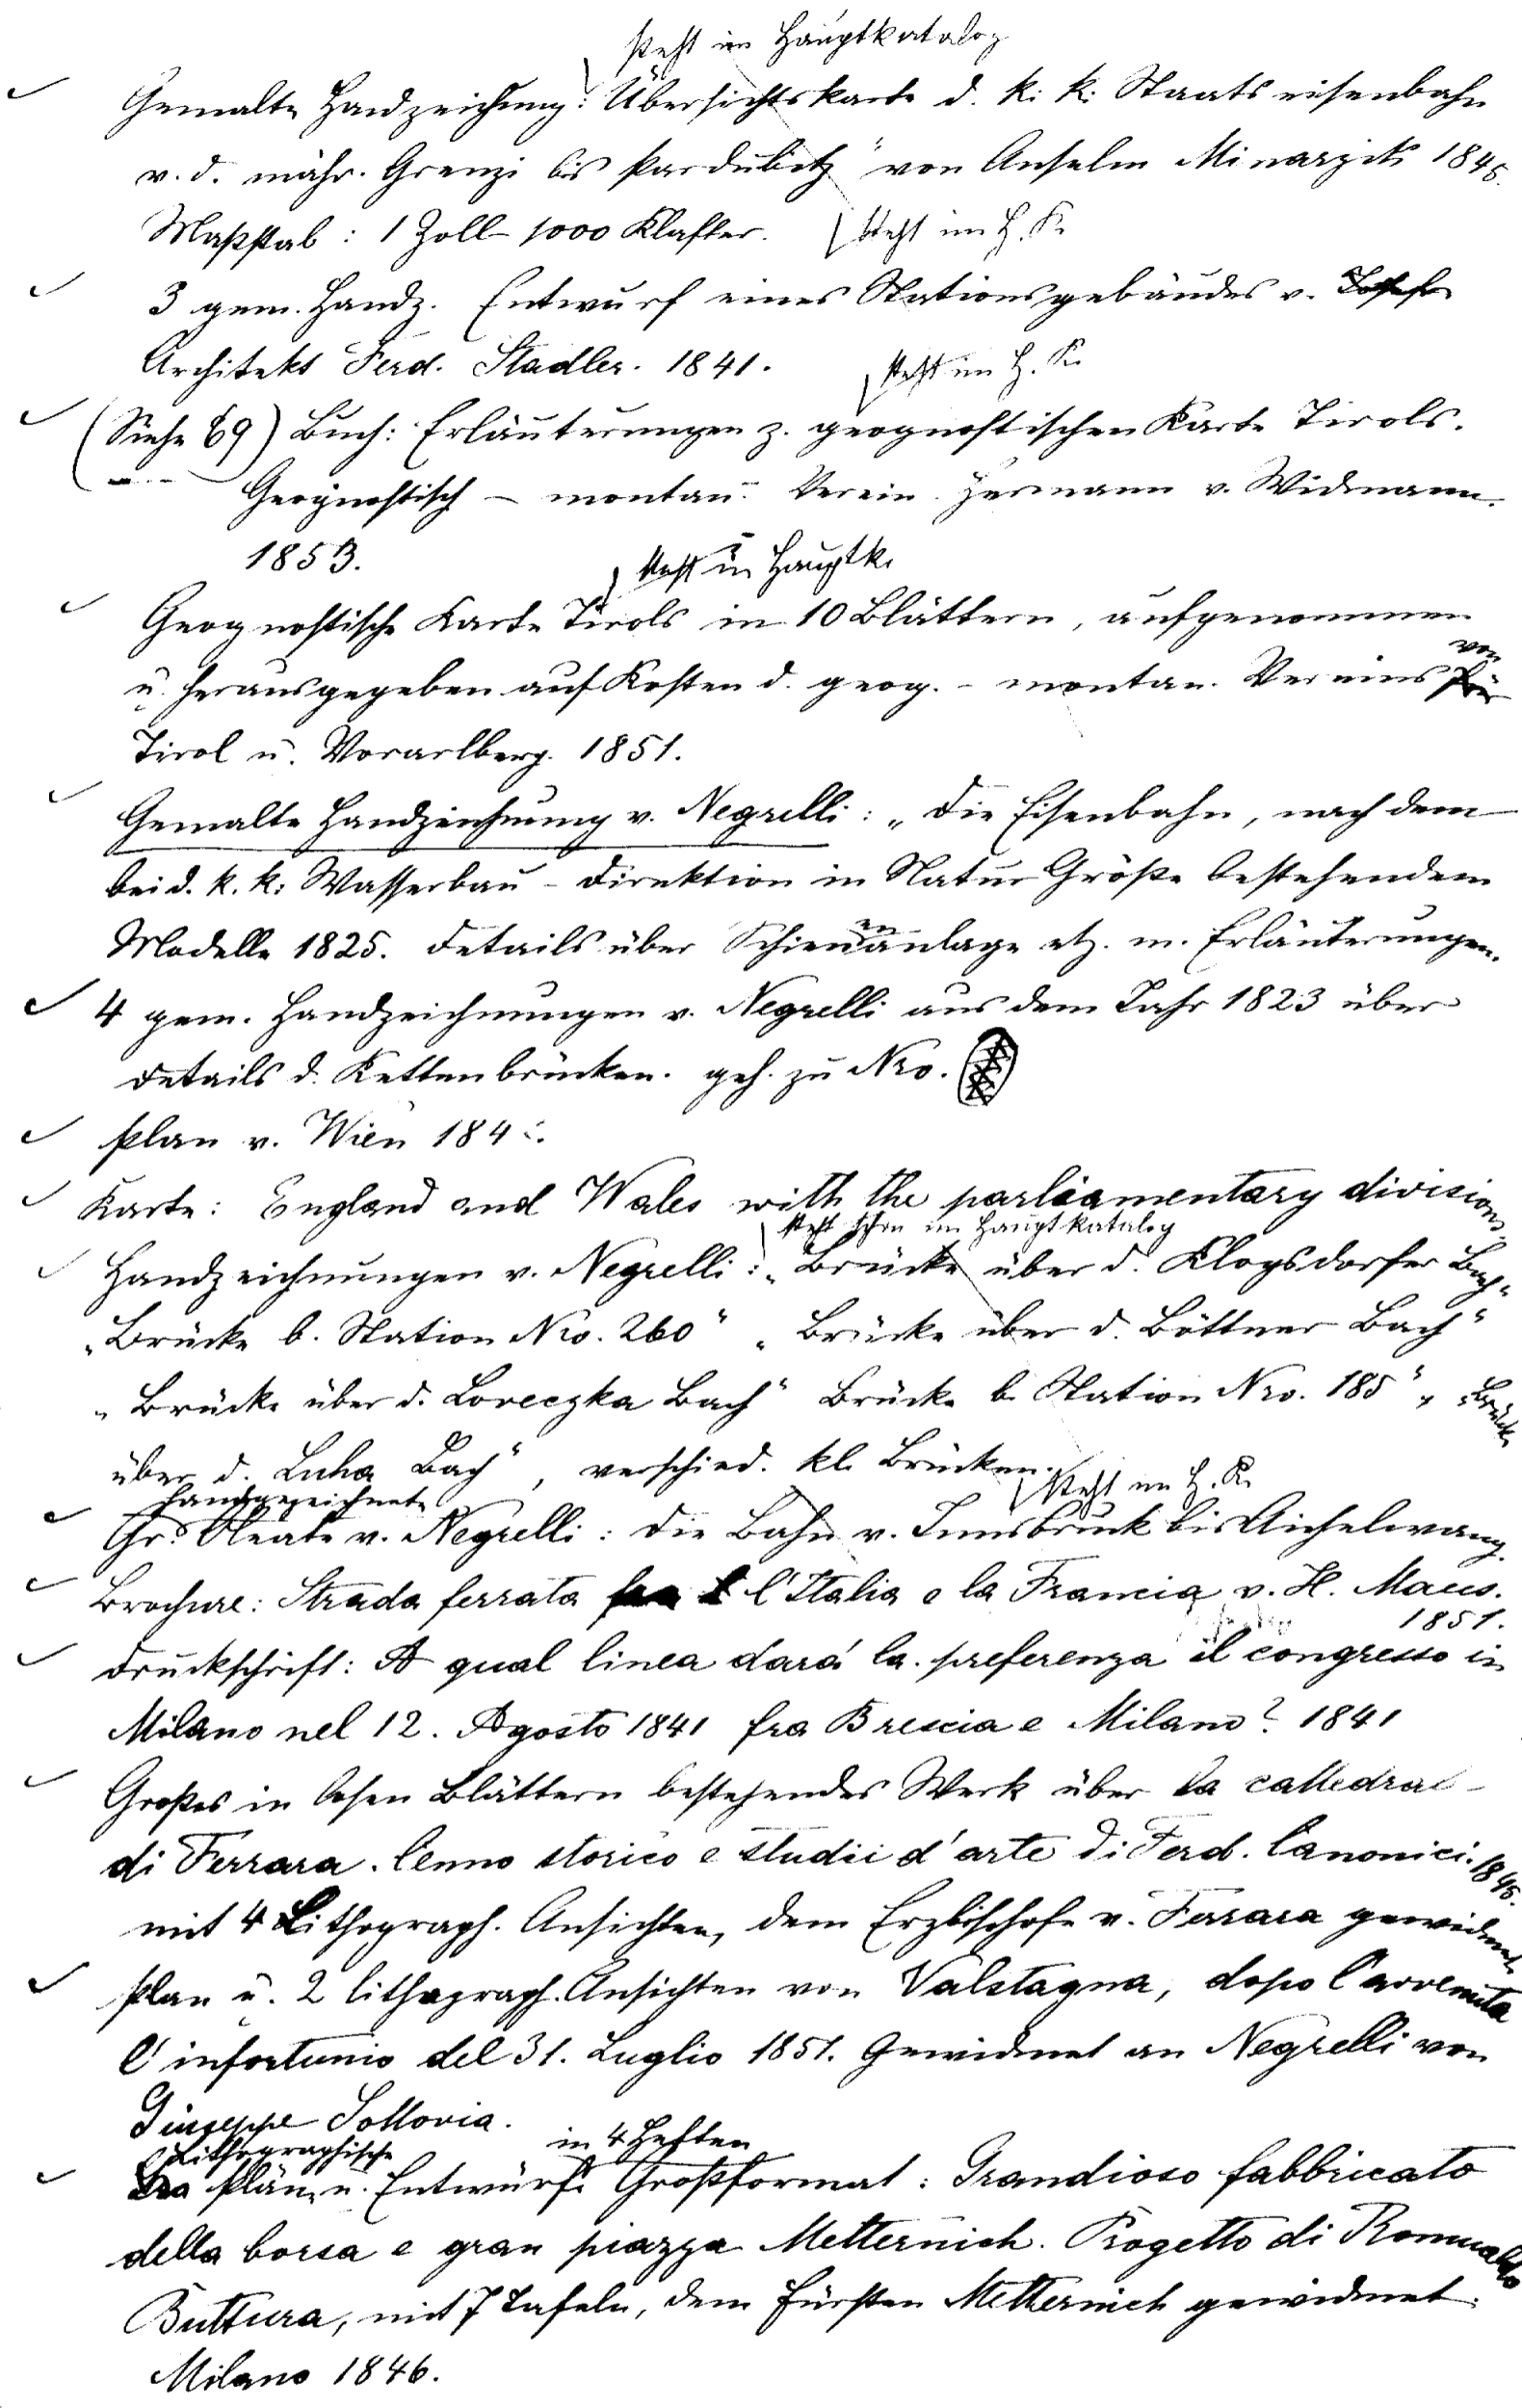 steht im Hauptkatalog
Gemalte Handzeichnung: Übersichtskarte d. k. k. Staatseisenbahn
v. d. mähr. Grenze bis Pardubitz" von Anselm Minarzik 1845.
Maßstab : 1 Zoll 1000 Klafter. steht im H. K.
3 gem. Handz. Entwurf eines Stationsgebäudes v.
Architekt Ferd. Stadler. 1841. steht im H. K.
(Siehe 69) Buch: Erläuterungen z. geognostischen Karte Tirols.
Geognostisch - montan. Verein. Hermann v. Widmann.
1853. steht im Hauptk.
Geognostische Karte Tirols in 10 Blättern, aufgenommen
u. herausgegeben auf Kosten d. geog. - montan. Vereins von
Tirol u. Vorarlberg. 1851.
Gemalte Handzeichnung v. Negrelli : „Die Eisenbahn, nach dem
bei d. k. k. Wasserbau - Direktion in Natur Größe bestehendem
Modelle 1825. Details über Schienenanlage etz. m. Erläuterungen.
4 gem. Handzeichnungen v. Negrelli aus dem Jahr 1823 über
Details d. Kettenbrücken. geh. zu Nro.
Plan v. Wien
Karte: England and Wales with the parliamentary divisions.
steht schon im Hauptkatalog
Handzeichnungen v. Negrelli: „Brücke über d. Klogsdorfer Bach"
„Brücke b. Station Nro. 260" „Brücke über d. Böttner Bach"
„Brücke über d. Loveczka Bach" Brücke b. Station Nro. 185" „Brücke
über d. Luha Bach", verschied. kl. Brücken. steht im H. K.
handgezeichnete
Gr. Oleate v. Negrelli : Die Bahn v. Innsbruck bis Aichelwang.
Brochure: Strada ferrata l'Italia e la Francia v. H. Maus.
1851.
Druckschrift: A qual linea dará la preferenza il congresso in
Milano nel 12. Agosto 1841 fra Brescia e Milano? 1841
Großes in losen Blättern bestehendes Werk über la cattedral
di Ferrara. Cenno storico e studii d'arte di Ferd. Canonici. 1845.
mit 4 Lithograph. Ansichten, dem Erzbischofe v. Ferrara gewidmet
Plan u. 2 lithograph. Ansichten von Valstagna, dopo l'avvenuta
l'infortunio del 31. Luglio 1851. Gewidmet an Negrelli von
Giuseppe Sottovia.
Lithographische in 4 Heften
Pläne u. Entwürfe Großformat : Grandioso fabbricato
della borsa e gran piazza Metternich. Progetto di Romualdo
Buttura, mit 7 Tafeln, dem Fürsten Metternich gewidmet.
Milano 1846.